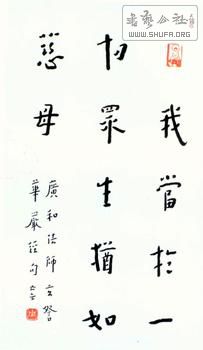 我當於一
切眾生猶如
慈母
廣和法師立誓
華嚴經句
書藝公社
WWW.SHUFA.ORG